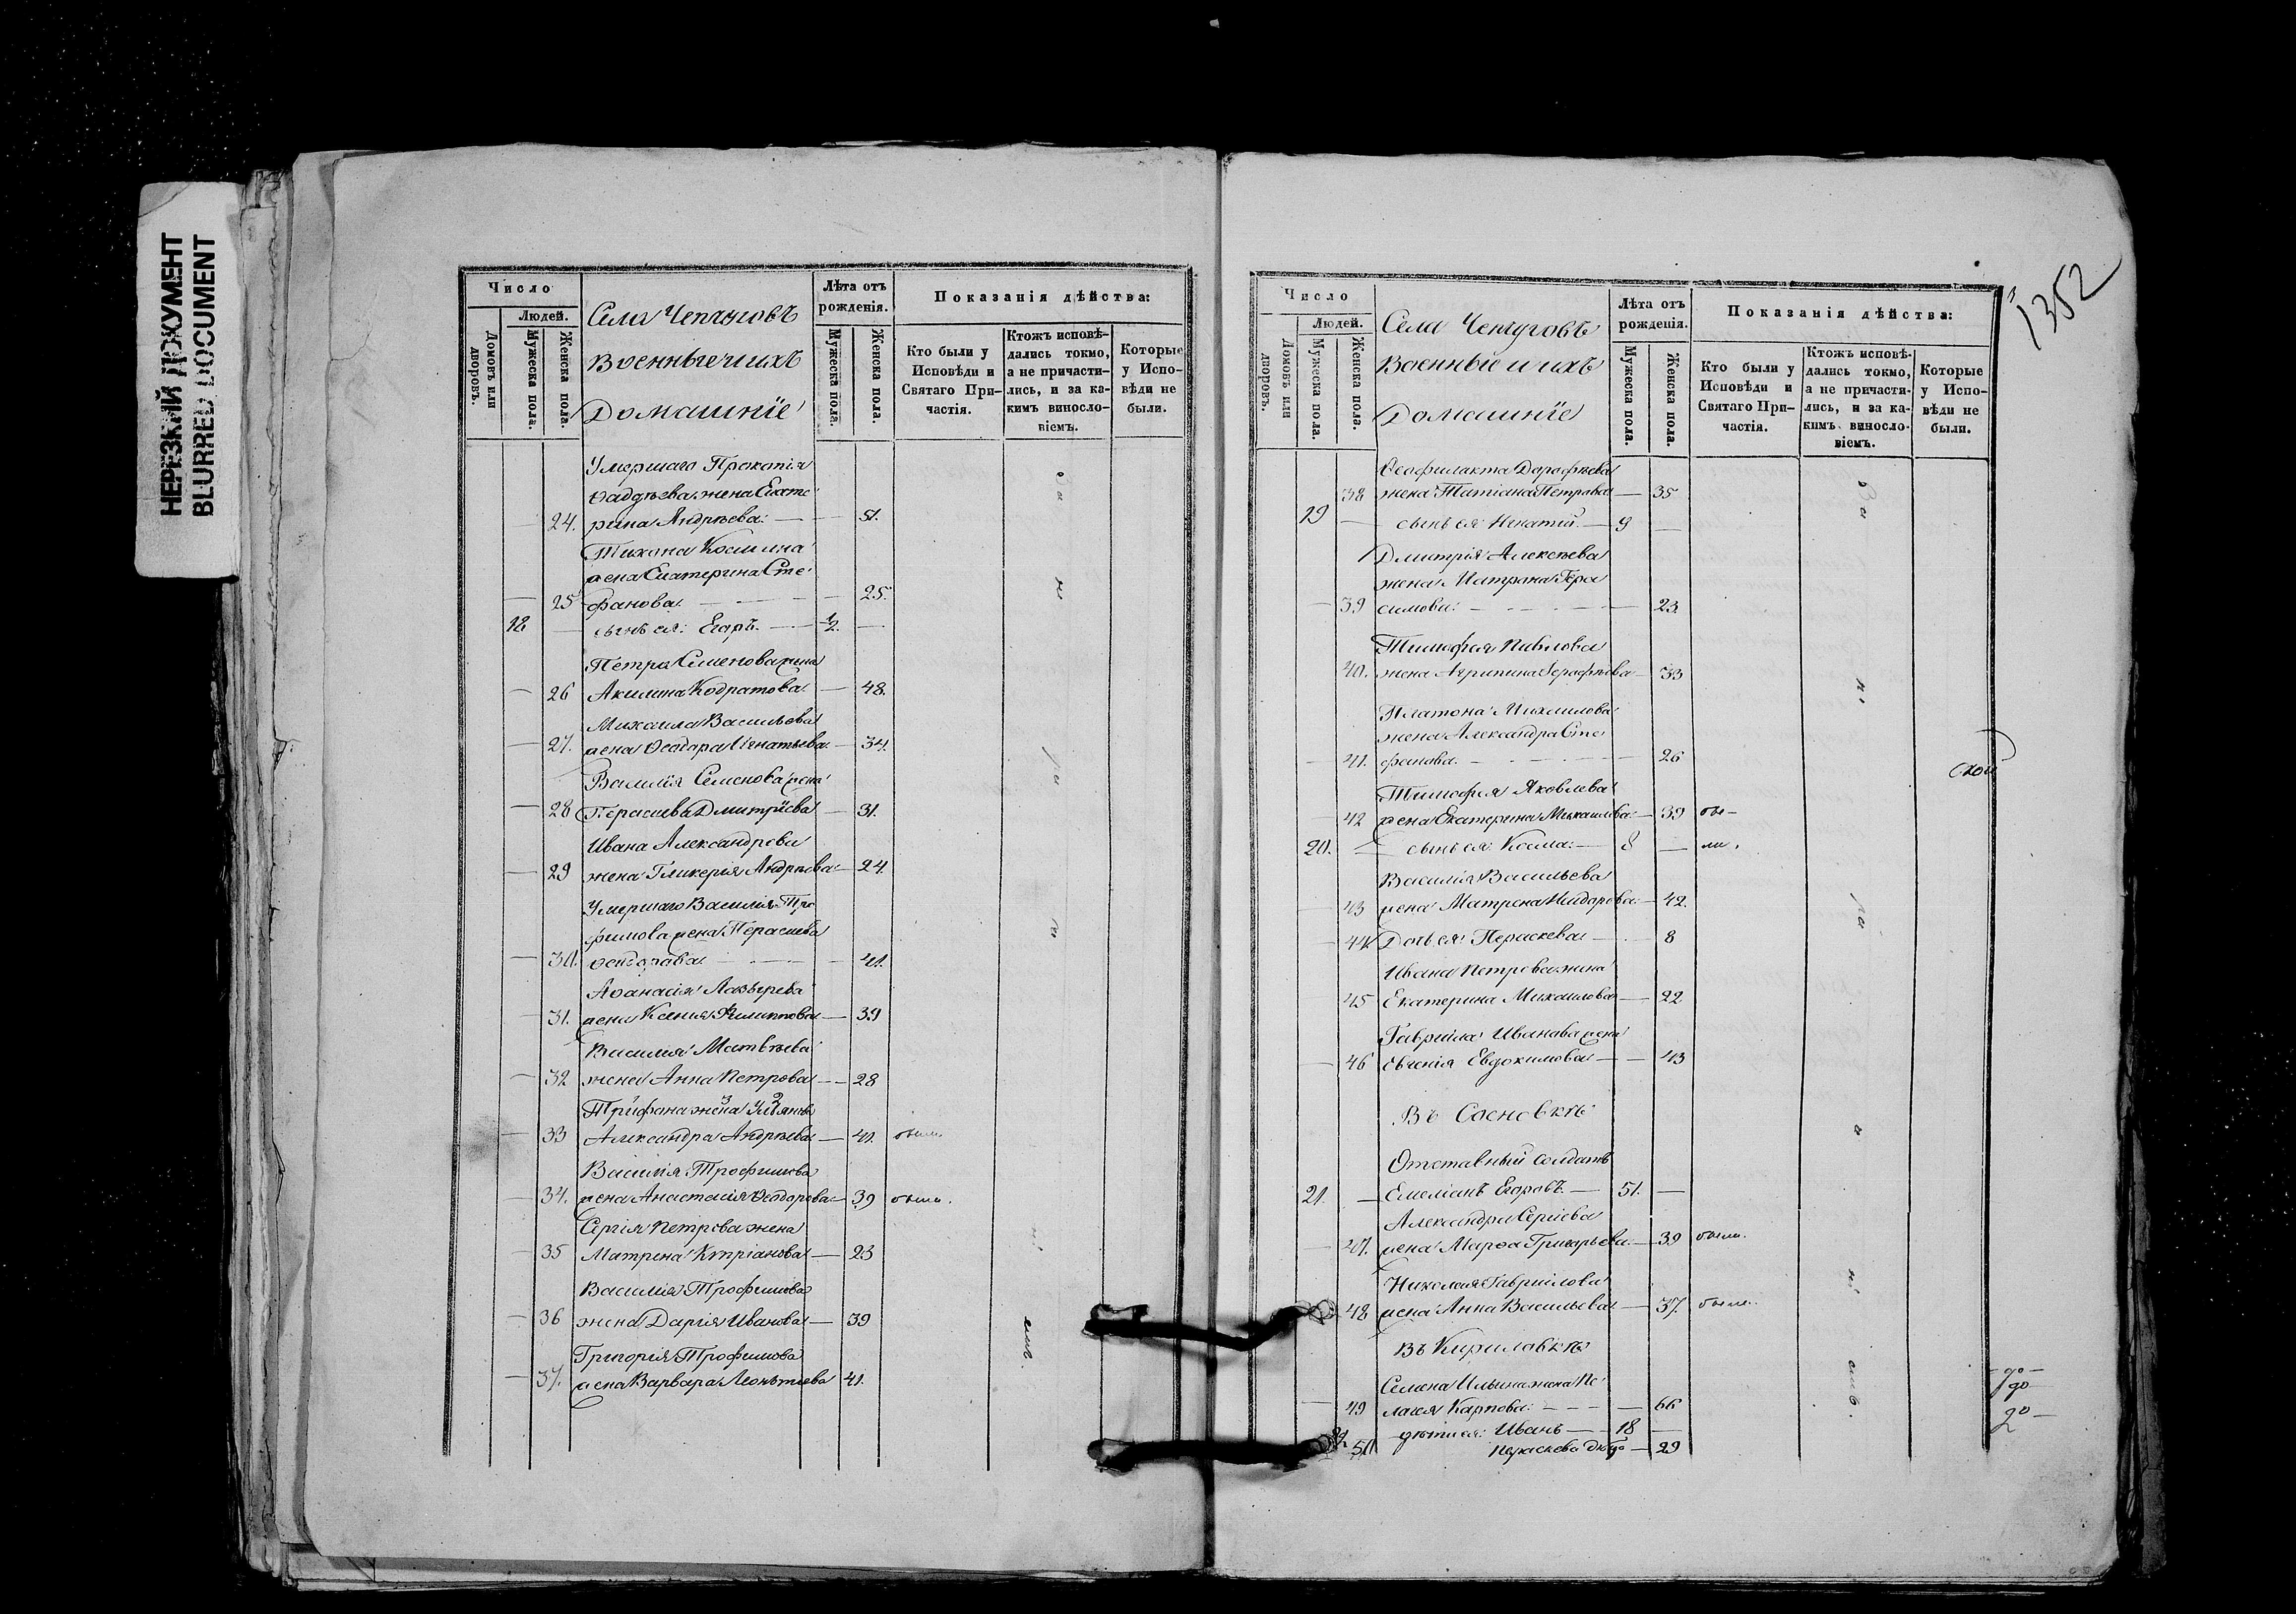 НЕРЕЗКИЙ ДОКУМЕНТ
BLURRED DOCUMENT
Число
Людей.
Домовъ или дворовъ.
Мужеска пола.
Женска пола.
Села Чепчуговъ
Военные и ихъ
Домашніе
Лѣта отъ рожденія.
Мужеска пола.
Женска пола.
Показанія дѣйства:
Кто были у Исповѣди и Святаго Причастія.
Ктожъ исповѣдались токмо, а не причастились, и за какимъ винословіемъ.
Которые у Исповѣди не были.
Умершаго Прокопія
Фаддѣева жена Екате
24. рина Андрѣева. — — 51.
Тихона Косьмина
жена Екатерина Сте
— 25 фанова. — — 25.
18 — сынъ ея: Егоръ. — 1/2. —
Петра Семенова жена
— 26 Акилина Кодратова. — 48.
Михаила Васильева
— 27. жена Ѳеодора Игнатьева. — 34.
Василія Семенова жена
— 28 Параскева Дмитріева — 31.
Ивана Александрова
— 29 жена Гликерія Андрѣева — 24.
Умершаго Василія Тро
фимова жена Параскева
— 30. Ѳеодорова. — — 41.
Аѳанасія Лазырева
— 31. жена Ксенія Филиппова — 39
Василія Матвѣева
— 32 жена Анна Петрова — 28
Трифона жена
— 33 Александра Андрѣева — 41. были
Василія Трофимова
— 34. жена Анастасія Ѳеодорова — 39 были.
Сергія Петрова жена
— 35 Матрена — 23
Василія Трофимова
— 36 жена Дарія Иванова — 39
Григорія Трофимова
— 37. жена Варвара Леонтьева 41.
1352
Число
Людей.
Домовъ или дворовъ.
Мужеска пола.
Женска пола.
Села Чепчуговъ
Военные и ихъ
Домашніе
Лѣта отъ рожденія.
Мужеска пола.
Женска пола.
Показанія дѣйства:
Кто были у Исповѣди и Святаго Причастія.
Ктожъ исповѣдались токмо, а не причастились, и за какимъ винословіемъ.
Которые у Исповѣди не были.
Ѳеофилакта Дорофѣева
38 жена Татіана Петрова — 35
19 — сынъ ея: Игнатій. — 9 —
Дмитрія Алексѣева
жена Матрона Гера
— 39 симова. — — 23
Тимофея Павлова
40. жена Агрипина — 33
Платона Михаилова
жена Александра Сте
— 41. фанова. — — 26
Тимофея Яковлева
— 42 жена Екатерина Михаилова — 39 бы-
20. — сынъ ея: Косма. — 8 — ли.
Василія Васильева
— 43 жена Матрена — 42.
— 44 Дочь ея: Параскева — 8
Ивана Петрова жена
— 45 Екатерина Михаилова — 22
Гавріила Иванова жена
— 46 Евгенія Евдокимова — — 43
Въ Сосновкѣ
Отставный солдатъ
21. — Емеліанъ Егоровъ. — 51. —
Александра Сергіева
— 47. жена Марѳа Григорьева — 39 были.
Николая Гавріилова
— 48 жена Анна Васильева — 37. были.
Въ Кириловкѣ
Семена Ильина жена Пе
— 49 лагея Карпова. — — 66
дѣти ея: Иванъ — 18 —
50 Параскева — 29